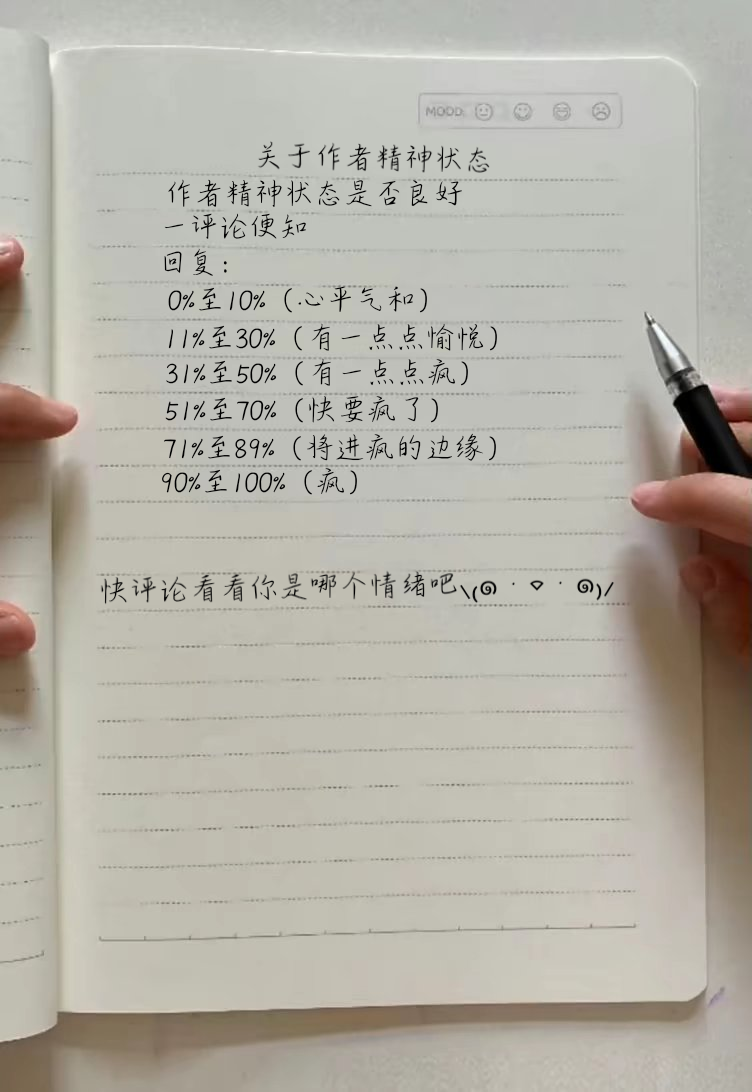 MOOD:
关于作者精神状态
作者精神状态是否良好
一评论便知
回复：
0%至10%（心平气和）
11%至30%（有一点点愉悦）
31%至50%（有一点点疯）
51%至70%（快要疯了）
71%至89%（将进疯的边缘）
90%至100%（疯）
快评论看看你是哪个情绪吧\(๑ · ▽ · ๑)/